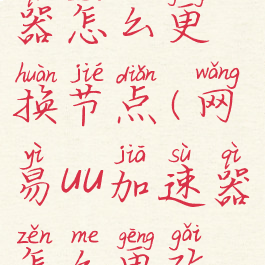 器怎么更
huàn jié diǎn wǎng
换节点(网
yì jiā sù qì
易uu加速器
zěn me gēng gǎi
怎么更改